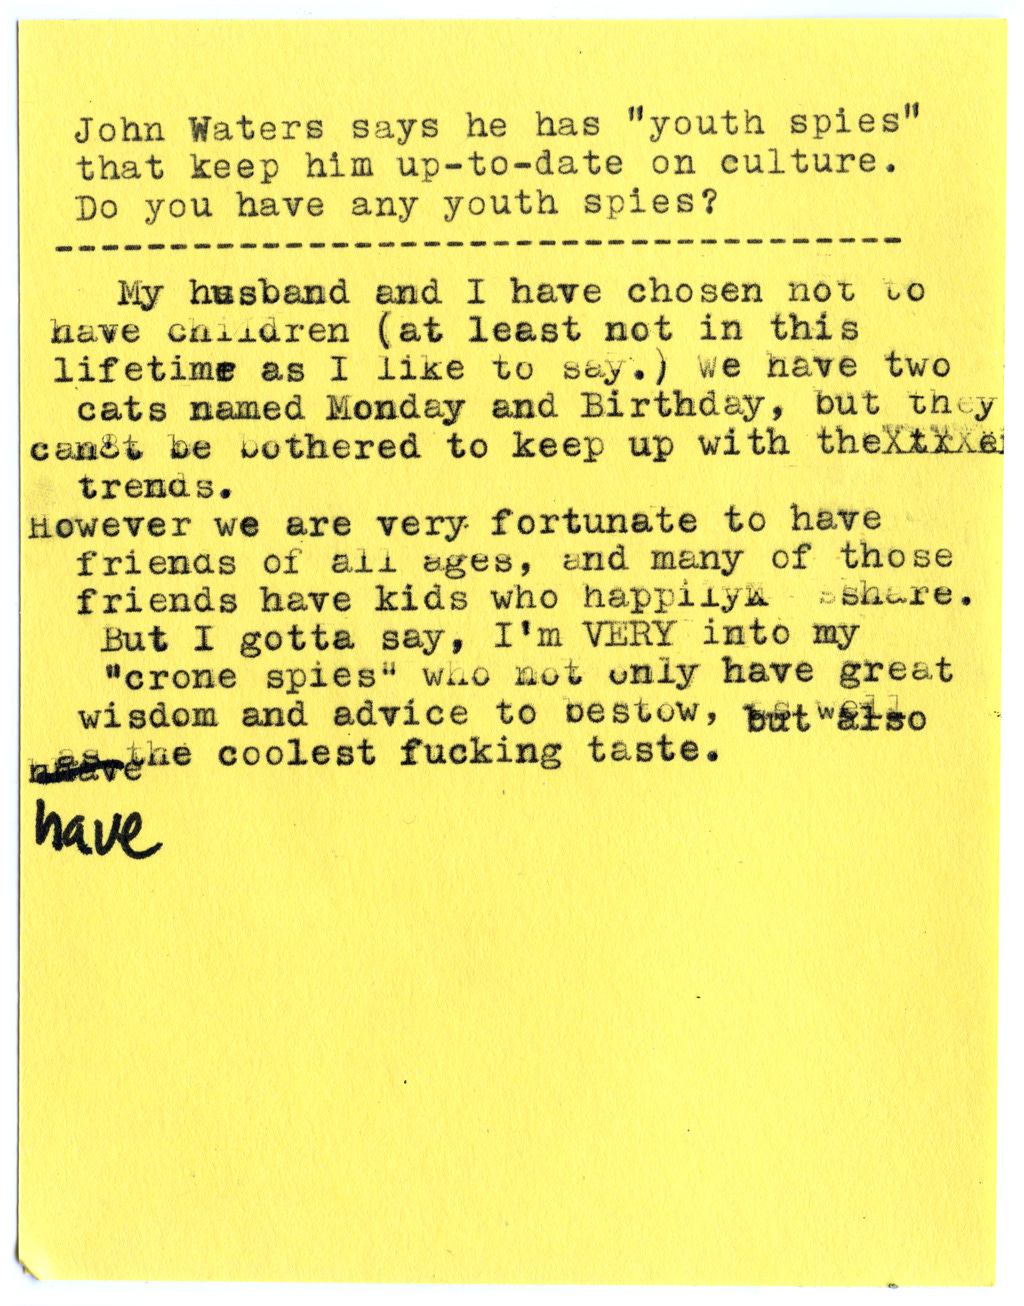 John Waters says he has "youth spies"
that keep him up-to-date on culture.
Do you have any youth spies?
--------------------------------------
My husband and I have chosen not to
have children (at least not in this
lifetime as I like to say.) We have two
cats named Monday and Birthday, but they
can't be bothered to keep up with the
trends.
However we are very fortunate to have
friends of all ages, and many of those
friends have kids who happily share.
But I gotta say, I'm VERY into my
"crone spies" who not only have great
wisdom and advice to bestow, but also
the coolest fucking taste.
have